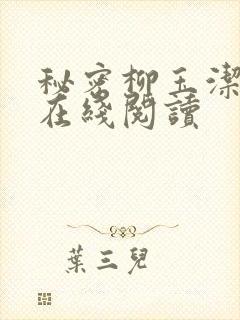 秘密柳玉潔
在綫閱讀
葉三兒